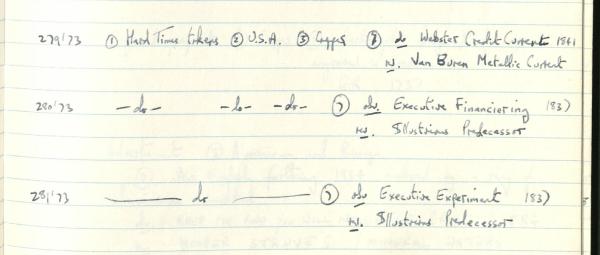 279'73 ① Hard Times tokens ② U.S.A. ③ Copper ⑦ ob Webster Credit Current 1841
rv. Van Buren Metallic Current
280'73 -do- -do- -do- ⑦ obv. Executive Financiering 1837
rv. Illustrious Predecessor
281'73 do ⑦ obv Executive Experiment 1837
rv. Illustrious Predecessor